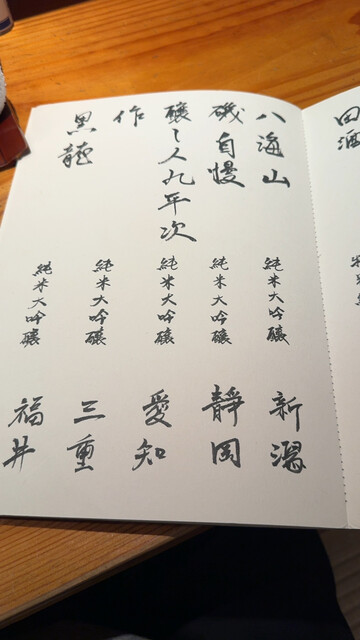 田酒
八海山 純米大吟醸 新潟
磯自慢 純米大吟醸 静岡
醸し人九平次 純米大吟醸 愛知
作 純米大吟醸 三重
黒龍 純米大吟醸 福井